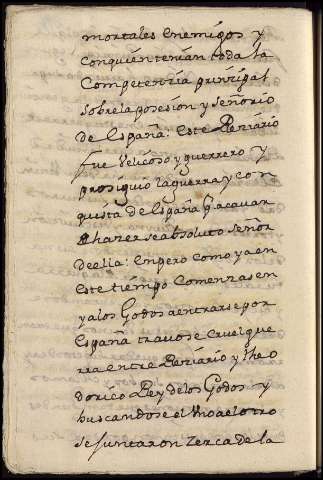 mortales enemigos y
conquien tenian toda la
Competenzia prinzipal
sobre la posesion y señorio
de España: Este Reziario
fue velicoso y guerrero y
prosiguio la guerra y con
quista de España
Ahazerse absoluto señor
de ella: Empero como ya en
este tiempo Comenzasen
ya los Godos a entrarse por
España travose cruel gue
rra entre Reziario y theo
dorico Rey de los Godos y
buscandose el uno a el otro
se juntaron zerca de la